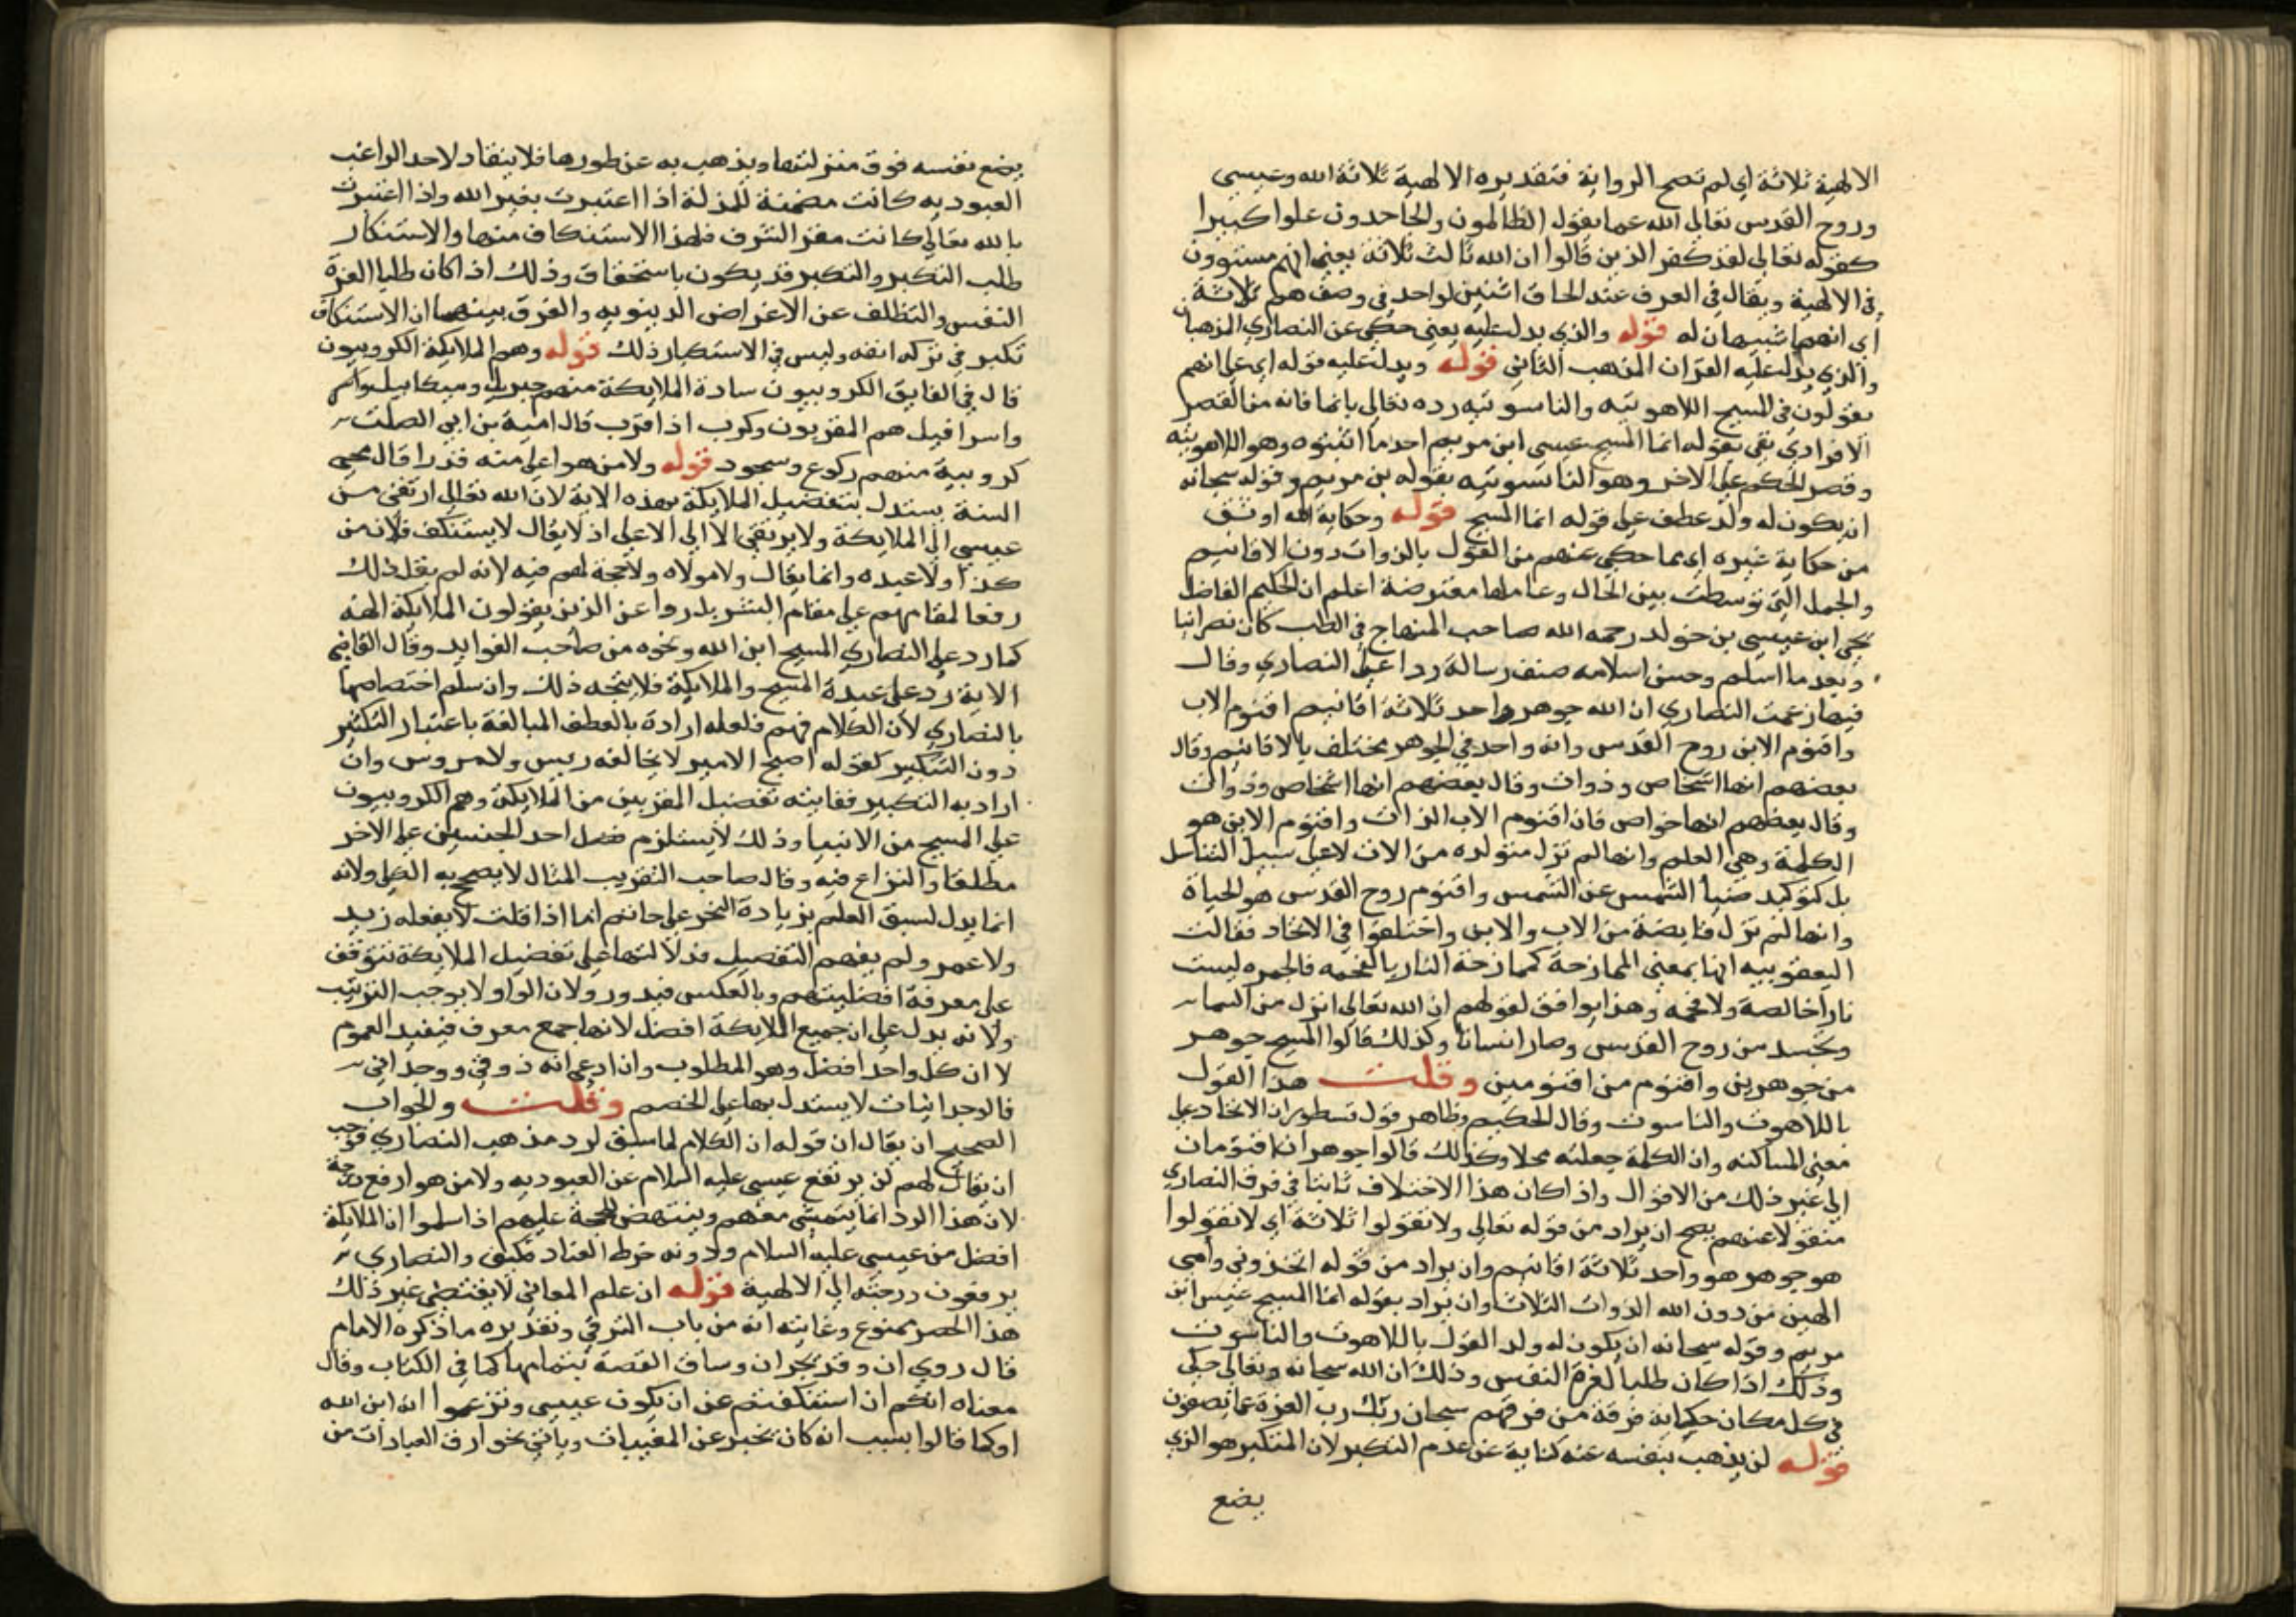 الالهية ثلاثة اي لم تصح الرواية فتقديره الالهية ثلاثة الله وعيسى
وروح القدس تعالى الله عما يقول الظالمون والجاحدون علوا كبيرا
كقوله تعالى لقد كفر الذين قالوا ان الله ثالث ثلاثة يعني انهم مستوون
في الالهية ويقال في العرف عند الحاق اثنين لواحد في وصف هم ثلاثة
اي انهما شبيهان له قوله والذي يدل عليه يعني حكي عن النصاري المذهبان
والذي يدل عليه القران المذهب الثاني قوله ويدل عليه قوله اي على انهم
يقولون في المسيح اللاهوتيه والناسوتيه رده تعالى بانما فانه من القصر
الافرادي بقي بقوله انما المسيح عيسى ابن مريم احد ما اثبتوه وهو اللاهوتيه
وقصر الحكم على الاخر وهو الناسوتيه بقوله بن مريم وقوله سبحانه
ان يكون له ولد عطف على قوله انما المسيح قوله وحكاية الله اوثق
من حكاية غيره اي مما حكي عنهم من القول بالذوات دون الاقانيم
والجمل التي توسطت بين الحال وعاملها معترضة اعلم ان الحكيم الفاضل
يحيى ابن عيسى بن خولد رحمه الله صاحب المنهاج في الطب كان نصرانيا
وبعد ما اسلم وحسن اسلامه صنف رسالة ردا على النصاري وقال
فيها زعمت النصاري ان الله جوهر واحد ثلاثة اقانيم اقنوم الاب
واقنوم الابن روح القدس وانه واحد في الجوهر مختلف بالاقانيم وقال
بعضهم انها اشخاص وذوات وقال بعضهم انها اشخاص وذوات
وقال بعضهم انها خواص فان اقنوم الاب الذات واقنوم الابن هو
الكلمة وهي العلم وانها لم تزل متولده من الاب لا على سبيل التناسل
بل كتوكيد ضياء الشمس عن الشمس واقنوم روح القدس هو الحياة
وانها لم تزل فايضة من الاب والابن واختلفوا في الاتحاد فقالت
اليعقوبيه انها بمعنى الممازجة كممازجة النار بالفحمه فالجمره ليست
نارا خالصة ولا فحمه وهذا يوافق لقولهم ان الله تعالى انزل من السماء
وتجسد من روح القدس وصار انسانا وكذلك قالوا المسيح جوهر
من جوهرين واقنوم من اقنومين وقلت هذا القول
باللاهوت والناسوت وقال الحكيم وظاهر قول نسطور ان الاتحاد على
معنى المساكنه وان الكلمة جعلته محلا وكذلك قالوا جوهران اقنومان
الى غير ذلك من الاقوال واذا كان هذا الاختلاف ثابتا في فرق النصاري
منقولا عنهم يصح ان يراد من قوله تعالى ولا تقولوا ثلاثة اي لا تقولوا
هو جوهر هو واحد ثلاثة اقانيم وان يراد من قوله اتخذوني وامي
الهين من دون الله الذوات الثلاث وان يراد بقوله انما المسيح عيسى ابن
مريم وقوله سبحانه ان يكون له ولد القول باللاهوت والناسوت
وذلك اذا كان طلبا لغرم النفس وذلك ان الله سبحانه وتعالى حكى
في كل مكان حكاية فرقة من فرقهم سبحان ربك رب العزة عما يصفون
قوله لن يذهب بنفسه عنه كناية عن عدم التكبر لان المتكبر هو الذي
يضع
يضع نفسه فوق منزلتها ويذهب به عن طورها فلا ينقاد لاحد الراغب
العبوديه كانت مضمنة للمذلة اذا اعتبرت بغير الله واذا اعتبرت
بالله تعالى كانت مقر الشرف فلهذا الاستنكاف منها والاستكبار
طلب التكبر والتكبر قد يكون باستحقاق وذلك اذا كان طلبا لعزة
النفس والتظلف عن الاغراض الدينويه والفرق بينهما ان الاستنكاف
تكبر في تركه انفه وليس في الاستكبار ذلك قوله وهم الملايكة الكروبيون
قال في الفايق الكروبيون سادة الملايكة منهم جبريل وميكاييل
واسرافيل هم المقربون وكرب اذا قرب قال امية بن ابي الصلت
كروبية منهم ركوع وسجود قوله ولا من هو اعلى منه قدرا قال محيي
السنة يستدل بتفضيل الملايكة بهذه الاية لان الله تعالى ارتقى من
عيسى الى الملايكة ولا يرتقى الا الى الاعلى اذ لا يقال لا يستنكف فلان من
كذا ولا عبده وانما يقال ولا مولاه ولا حجة لهم فيه لانه لم يقل ذلك
رفعا لمقامهم على مقام البشر بل ردا عن الذين يقولون الملايكة الهه
كما رد على النصاري المسيح ابن الله ونحوه من صاحب الفوايد وقال القاضي
الاية رد على عبدة المسيح والملايكة فلا يتجه ذلك وان سلم اختصاصها
بالنصاري لان الكلام فيهم فلعله ارادة بالعطف المبالغة باعتبار التكثير
دون التكبير كقوله اصبح الامير لا يخالفه رييس ولا مروس وان
اراد به التكبير فغايته تفضيل المقربين من الملايكة وهم الكروبيون
على المسيح من الانبيا وذلك لا يستلزم فضل احد الجنسين على الاخر
مطلقا والنزاع فيه وقال صاحب التقريب المثال لا يصح به الكلي ولانه
انما يدل لسبق العلم بزيادة البحر على حاتم اما اذا قلت لا يفعله زيد
ولا عمرو لم يفهم التفضيل فدلالتها على تفضيل الملايكة تتوقف
على معرفة افضليتهم وبالعكس فيدور ولان الواو لا يوجب الترتيب
ولانه يدل على ان جميع الملايكة افضل لانها جمع معرف فيفيد العموم
لا ان كل واحد افضل وهو المطلوب وان ادعى انه ذوقي ووجداني
فالوجدانيات لا يستدل بها على الخصم وقلت والجواب
الصحيح ان يقال ان قوله ان الكلام لما سيق لرد مذهب النصاري فوجب
ان يقال لهم لن يرتفع عيسى عليه السلام عن العبوديه ولا من هو ارفع درجة
لان هذا الرد انما يتمشى معهم وينتهض الحجة عليهم اذا سلموا ان الملايكة
افضل من عيسى عليه السلام ودونه خرط القتاد فكيف والنصاري
يرفعون درجته الى الالهية قوله ان علم المعاني لا يقتضي غير ذلك
هذا الحصر ممنوع وغايته انه من باب الترقي وتقديره ما ذكره الامام
قال روي ان وفد نجران وساق القصة بتمامها كما في الكتاب وقال
معناه انكم ان استنكفتم عن ان يكون عيسى وتزعموا انه ابن الله
اوكما قالوا بسبب انه كان يخبر عن المغيبات وياتي بخوارق العبادات من